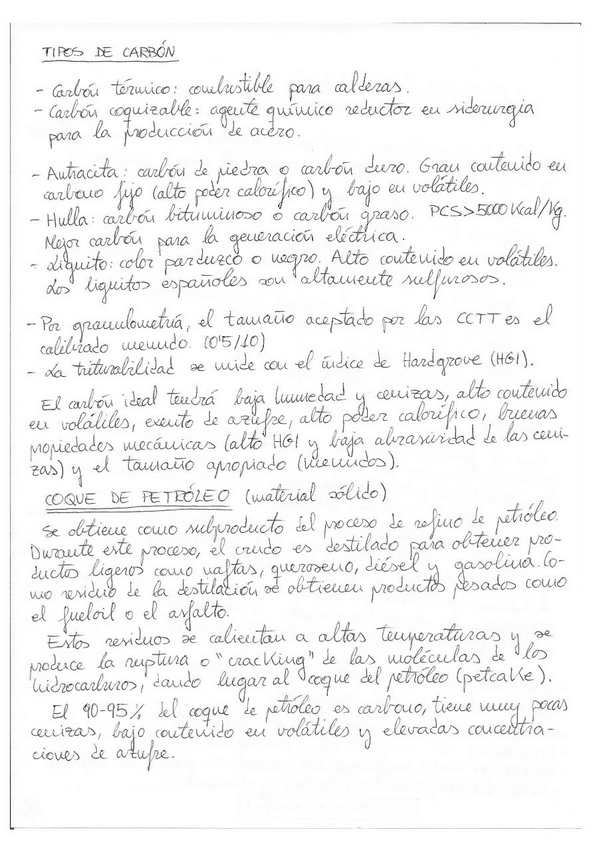 TIPOS DE CARBÓN
- Carbón térmico: combustible para calderas.
- Carbón coquizable: agente químico reductor en siderurgia
para la producción de acero.
- Antracita: carbón de piedra o carbón duro. Gran contenido en
carbono fijo (alto poder calorífico) y bajo en volátiles.
- Hulla: carbón bituminoso o carbón graso. PCS>5000 Kcal/Kg.
Mejor carbón para la generación eléctrica.
- Lignito: color parduzco o negro. Alto contenido en volátiles.
Los lignitos españoles son altamente sulfurosos.
- Por granulometría, el tamaño aceptado por las CCTT es el
calibrado menudo. (0'5/10)
- La triturabilidad se mide con el índice de Hardgrove (HGI).
El carbón ideal tendrá baja humedad y cenizas, alto contenido
en volátiles, exento de azufre, alto poder calorífico, buenas
propiedades mecánicas (alto HGI y baja abrasividad de las ceni-
zas) y el tamaño apropiado (menudos).
COQUE DE PETRÓLEO (material sólido)
Se obtiene como subproducto del proceso de refino de petróleo.
Durante este proceso, el crudo es destilado para obtener pro-
ductos ligeros como naftas, queroseno, diésel y gasolina. Co-
mo residuo de la destilación se obtienen productos pesados como
el fueloil o el asfalto.
Estos residuos se calientan a altas temperaturas y se
produce la ruptura o "cracking" de las moléculas de los
hidrocarburos, dando lugar al coque del petróleo (petcake).
El 90-95% del coque de petróleo es carbono, tiene muy pocas
cenizas, bajo contenido en volátiles y elevadas concentra-
ciones de azufre.